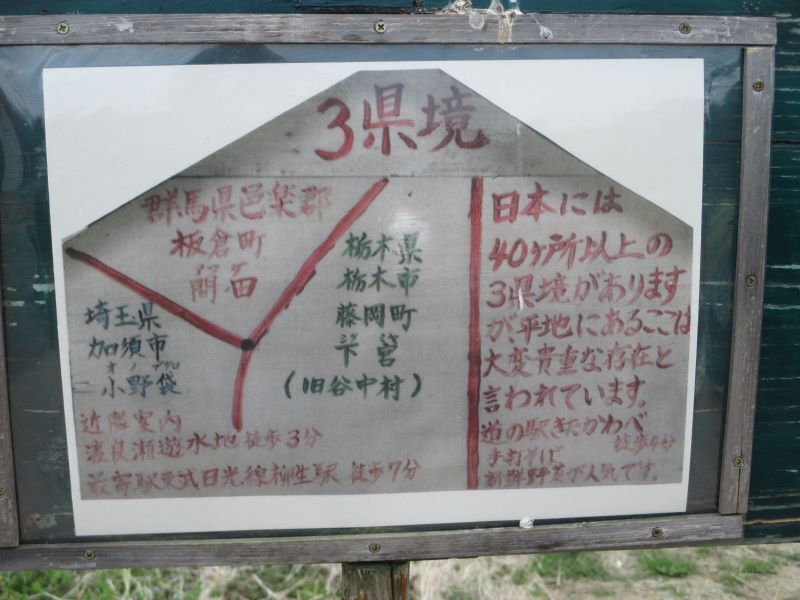 3県境
群馬県邑楽郡
板倉町
埼玉県
加須市
オノブクロ
小野袋
栃木県
栃木市
藤岡町
下宮
(旧谷中村)
日本には
40ヶ所以上の
3県境があります
が、平地にあるここは
大変貴重な存在と
言われています。
道の駅きたかわべ
徒歩9分
手打そば
新鮮野菜が人気です。
近隣案内
渡良瀬遊水地 徒歩3分
最寄駅東武日光線柳生駅 徒歩7分